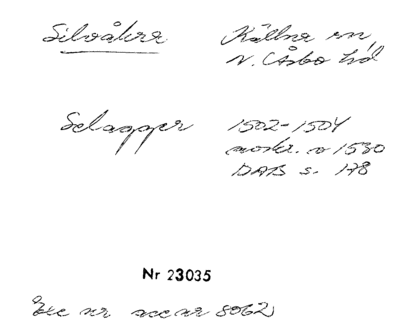 Silvåkra Källna sn,
N. Åsbo hd
Selagger 1502-1504
avskr. o 1530
DAB s. 178
Nr 23035
Exc nr acc nr 8062